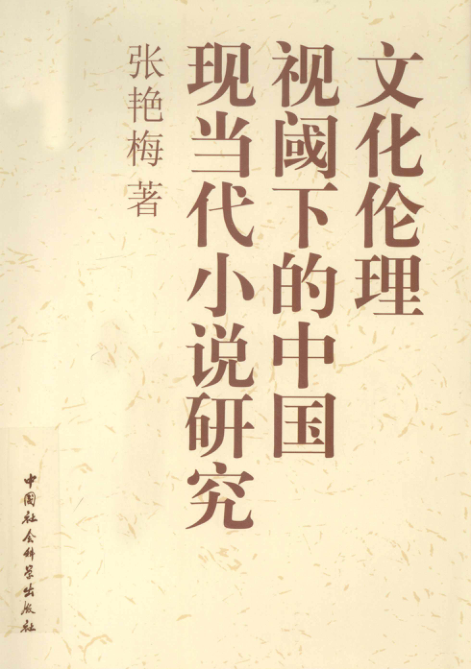 文化伦理
视阈下的中国
现当代小说研究
张艳梅 著
中国社会科学出版社